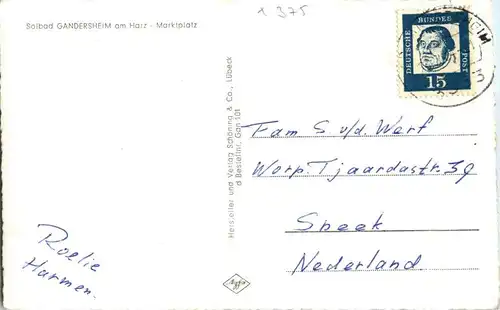 Solbad GANDERSHEIM am Harz - Marktplatz
1 375
DEUTSCHE BUNDES POST
15
HEIM
3
Hersteller und Verlag Schöning & Co., Lübeck
Bestellnr. Gan 101
Fam S. v/d. Werf
Worp. Tjaardastr. 39
Sneek
Nederland.
Roelie
Harmen.